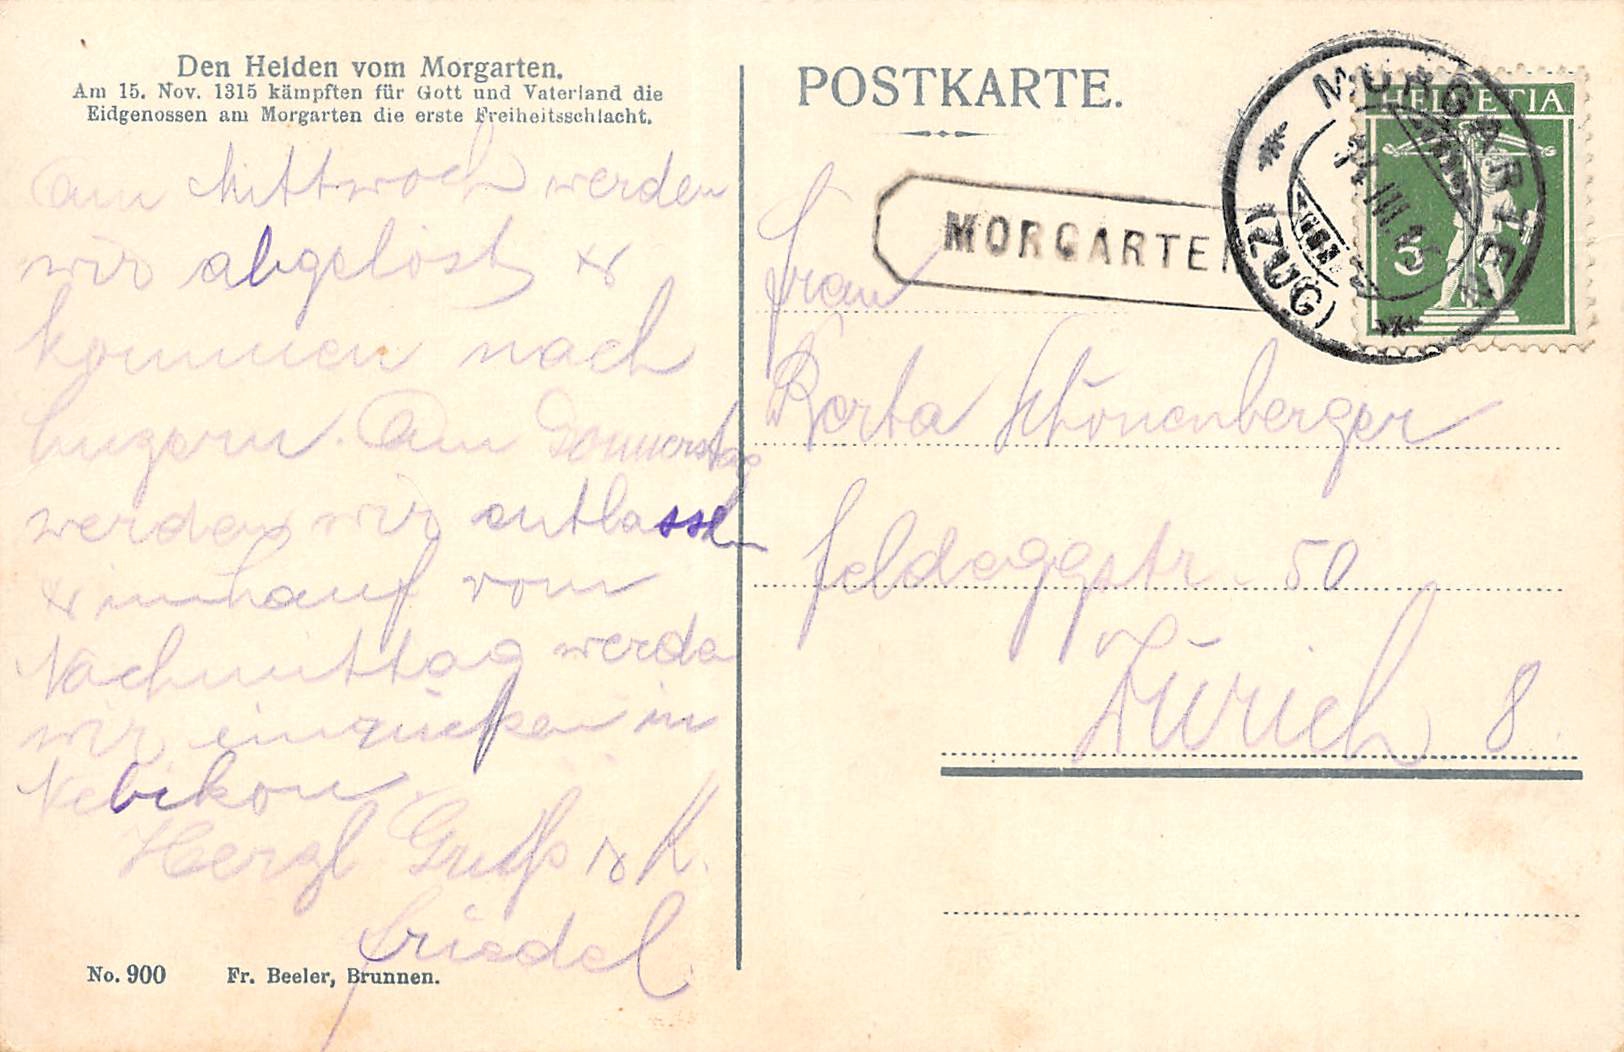 Den Helden vom Morgarten.
Am 15. Nov. 1315 kämpften für Gott und Vaterland die
Eidgenossen am Morgarten die erste Freiheitsschlacht.
Am Mittwoch werden
wir abgelöst &
kommen nach
Luzern. Am Donnerstag
werden wir entlassen
&
vom
Nachmittag werden
wir einrücken in
Nebikon.
Herzl Gruß & K.
Friedel
No. 900 Fr. Beeler, Brunnen.
POSTKARTE.
MORGARTEN
MORGARTEN
(ZUG)
HELVETIA
5
Frau
Berta Schönenberger
Feldeggstr. 50
Zürich 8.